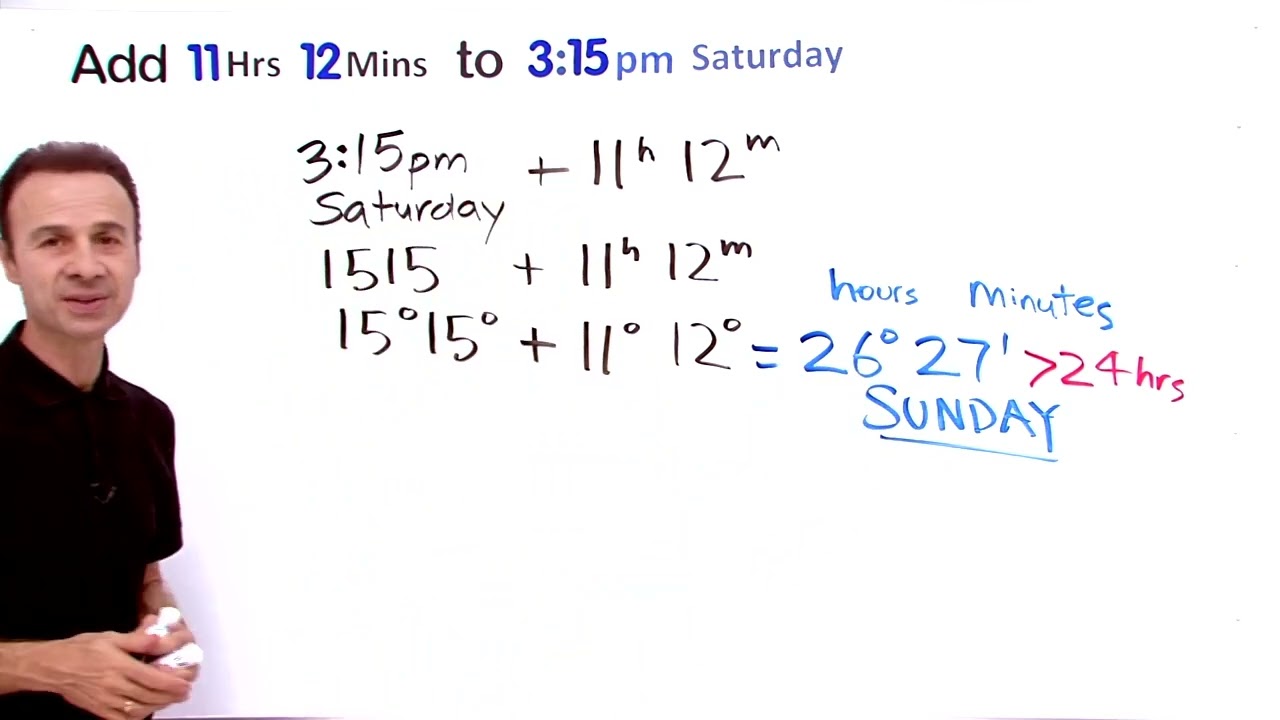 Add 11Hrs 12Mins to 3:15pm Saturday
3:15pm + 11ʰ 12ᵐ
Saturday
1515 + 11ʰ 12ᵐ
hours minutes
15°15° + 11° 12° = 26° 27' >24hrs
SUNDAY